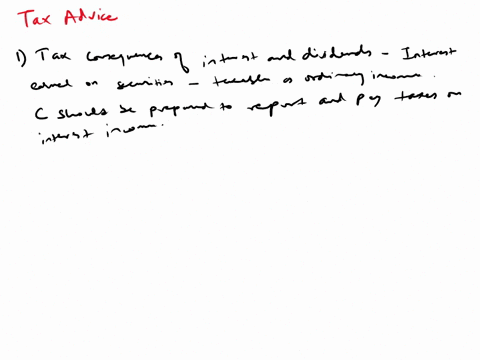 Tax Advice
1) Tax consequences of interest and dividends - Interest
earned on securities - taxable as ordinary income.
C should be prepared to report and pay taxes on
interest income.